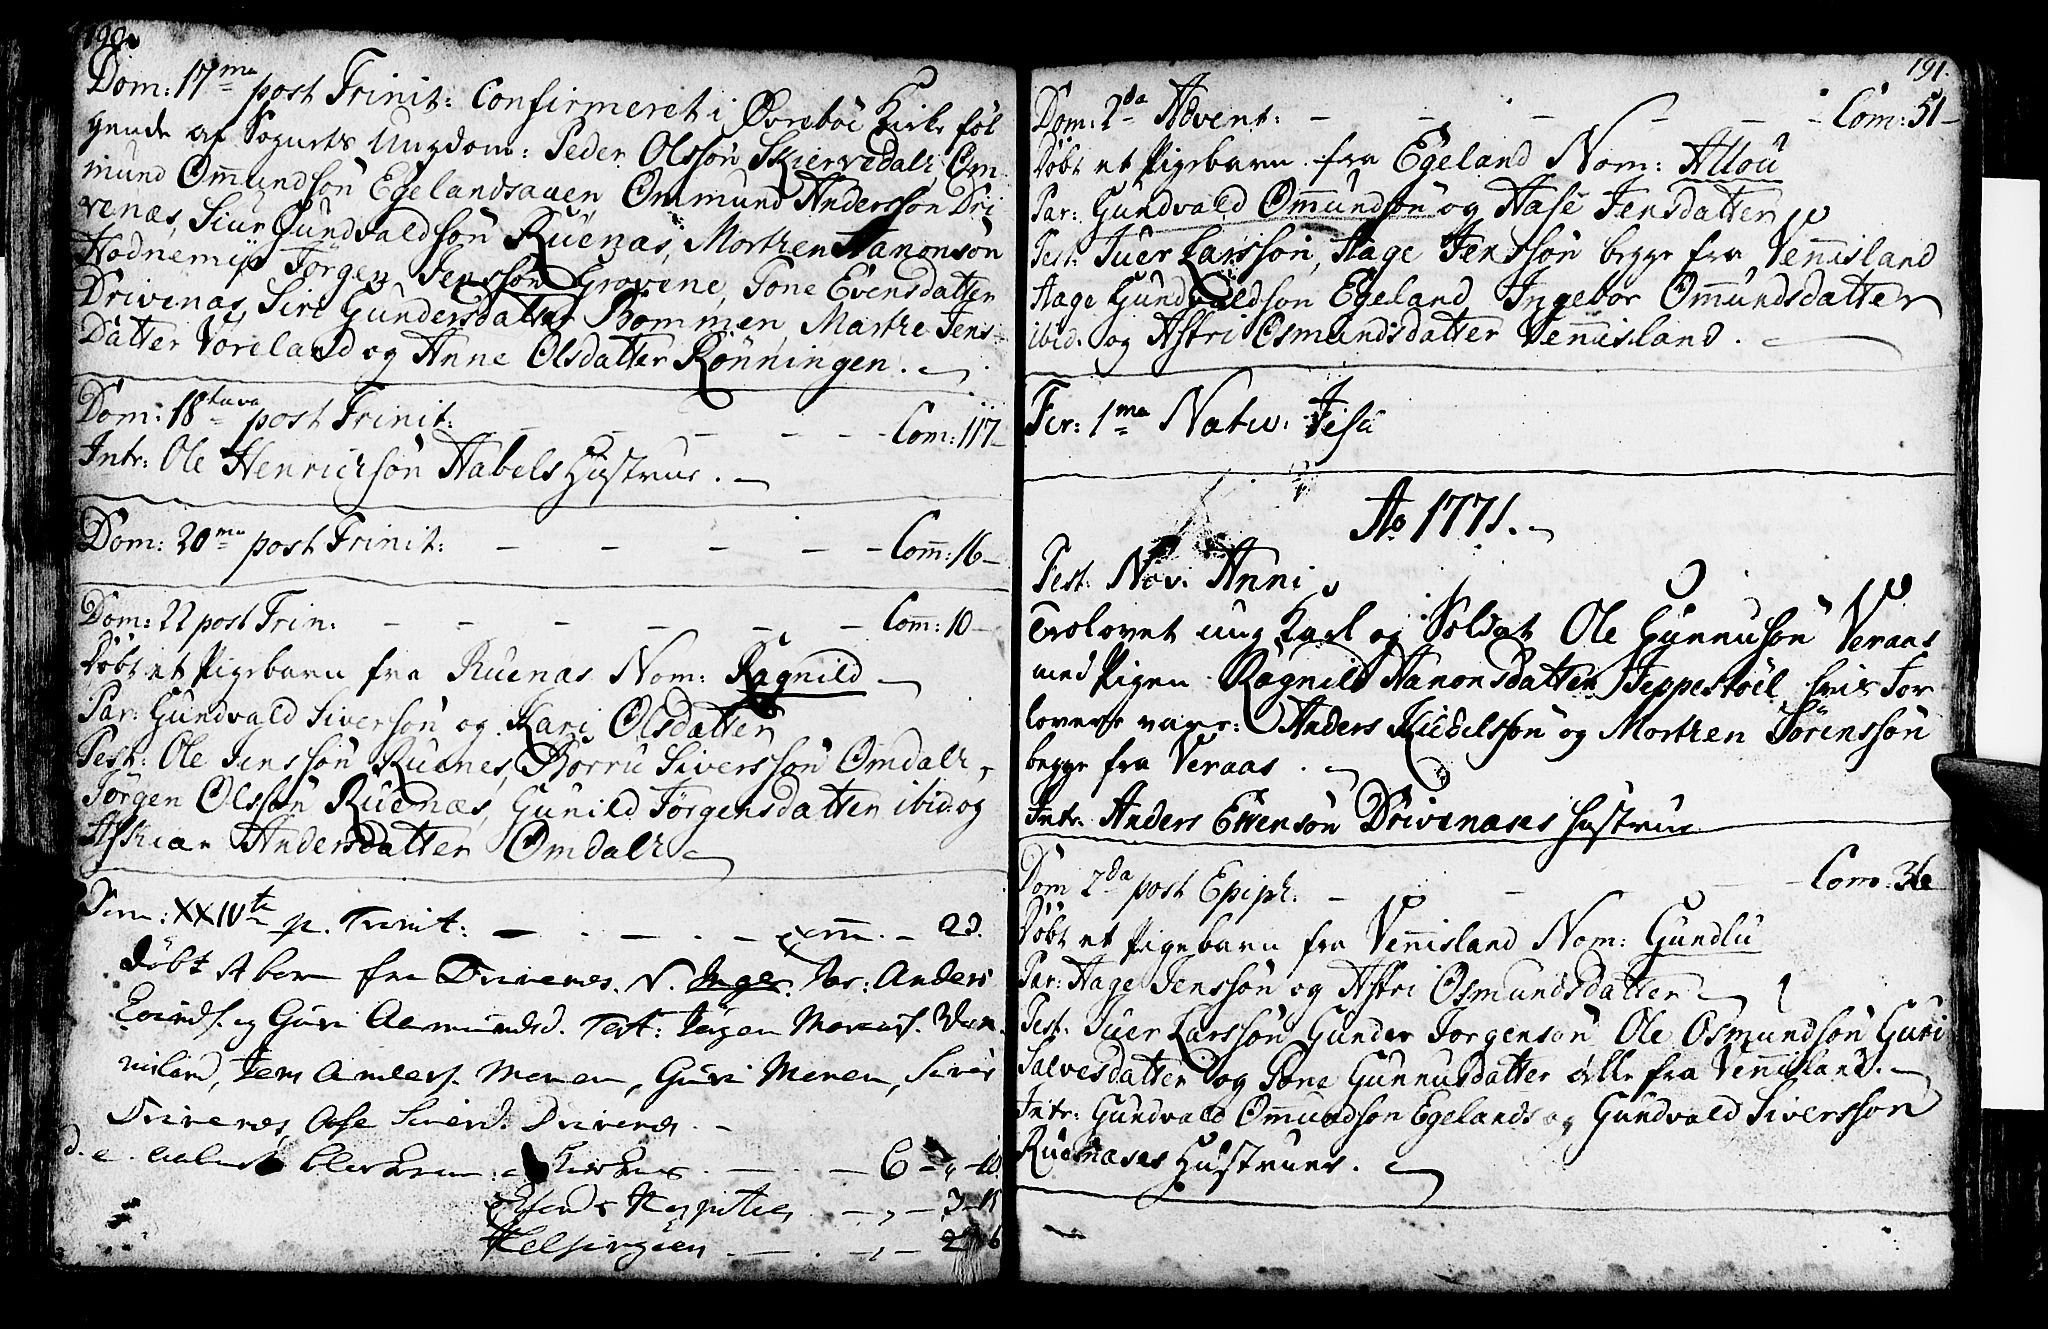 190.
Dom: 17ma post Trinit: Confirmeret i Øvrebøe Kirke føl
gende af Sognets Ungdom: Peder Olssön Skiervedals, Om
mund Om̅undsön Egelandsauen Ommund Anderssön Dri
venæs, Siur Gundvaldsön Ruenæs, Morthen Hanonsön
Hodnemyr Jörgen Jenssön Grovene, Tone Evensdatter
Drivenæs, Siri Gundersdatter Bommen, Marthe Jens
Datter Vöreland og Anne Olsdatter Rönningen.
Dom: 18tava post Trinit: - - - - Com: 117
Intr: Ole Henrichsön Aabels Hustrue.
Dom: 20ma post Trinit: - - - - Com̅: 16
Dom: 22 post Trin: - - - - - Com̅: 10
Döbt et Pigebarn fra Ruenas Nom: Ragnild
Par: Gundvald Siversön og Kari Olsdatter
Test: Ole Jenssön Ruenes, Börru Siverssön Omdals,
Jörgen Olssön Ruenæs, Gunild Jörgensdatter ibid. og
Anders Datter Omdals
Dom: XXIVte p. Trinit: - - - - 23.
Döbt et barn fra Drivenes. N. Inger. Par: Anders
Eivinds. og Guri Aamundsd. Test: Jörgen
Jens Anders. Moneen, Guri Moneen, Siver
Drivenes, Aase Siversd. Drivenes.
6 - 10
3 - 15
Helsingöen - - 2 - 6
191.
Dom: 2da Advent: - - - - - Com: 51
Döbt et Pigebarn fra Egeland Nom: Allou
Par: Gundvald Om̅undsön og Aase Jensdatter
Test: Iuer Larssön, Aage Jenssön begge fra Ven̅island
Aage Gundvaldsön Egeland Ingebor Om̅undsdatter
ibid. og Astri Osmundsdatter Ven̅island.
Fer: 1ma Nativ: Jesu
Ao 1771.
Fest: Nov. Anni
Trolovet ung Karl og Soldat Ole Gunnusön Veraas
med Pigen Ragnild Hanonsdatter Jeppestöel hvis For
lovere vare: Anders Kieldssön og Morthen Sörenssön
begge fra Veraas.
Intr: Anders Evensön Drivenases Hustrue
Dom 2da post Epiph: - - - Com: 36
Döbt et Pigebarn fra Ven̅island Nom: Gundlu
Par: Aage Jenssön og Astri Osmundsdatter
Test: Iuer Larssön Gunder Jorgensön Ole Osmundsön Guri
Salvesdatter og Tone Gunnusdatter alle fra Ven̅island.
Intr: Gundvald Om̅undsön Egelands og Gundvald Siversson
Ruenases Hustruer.